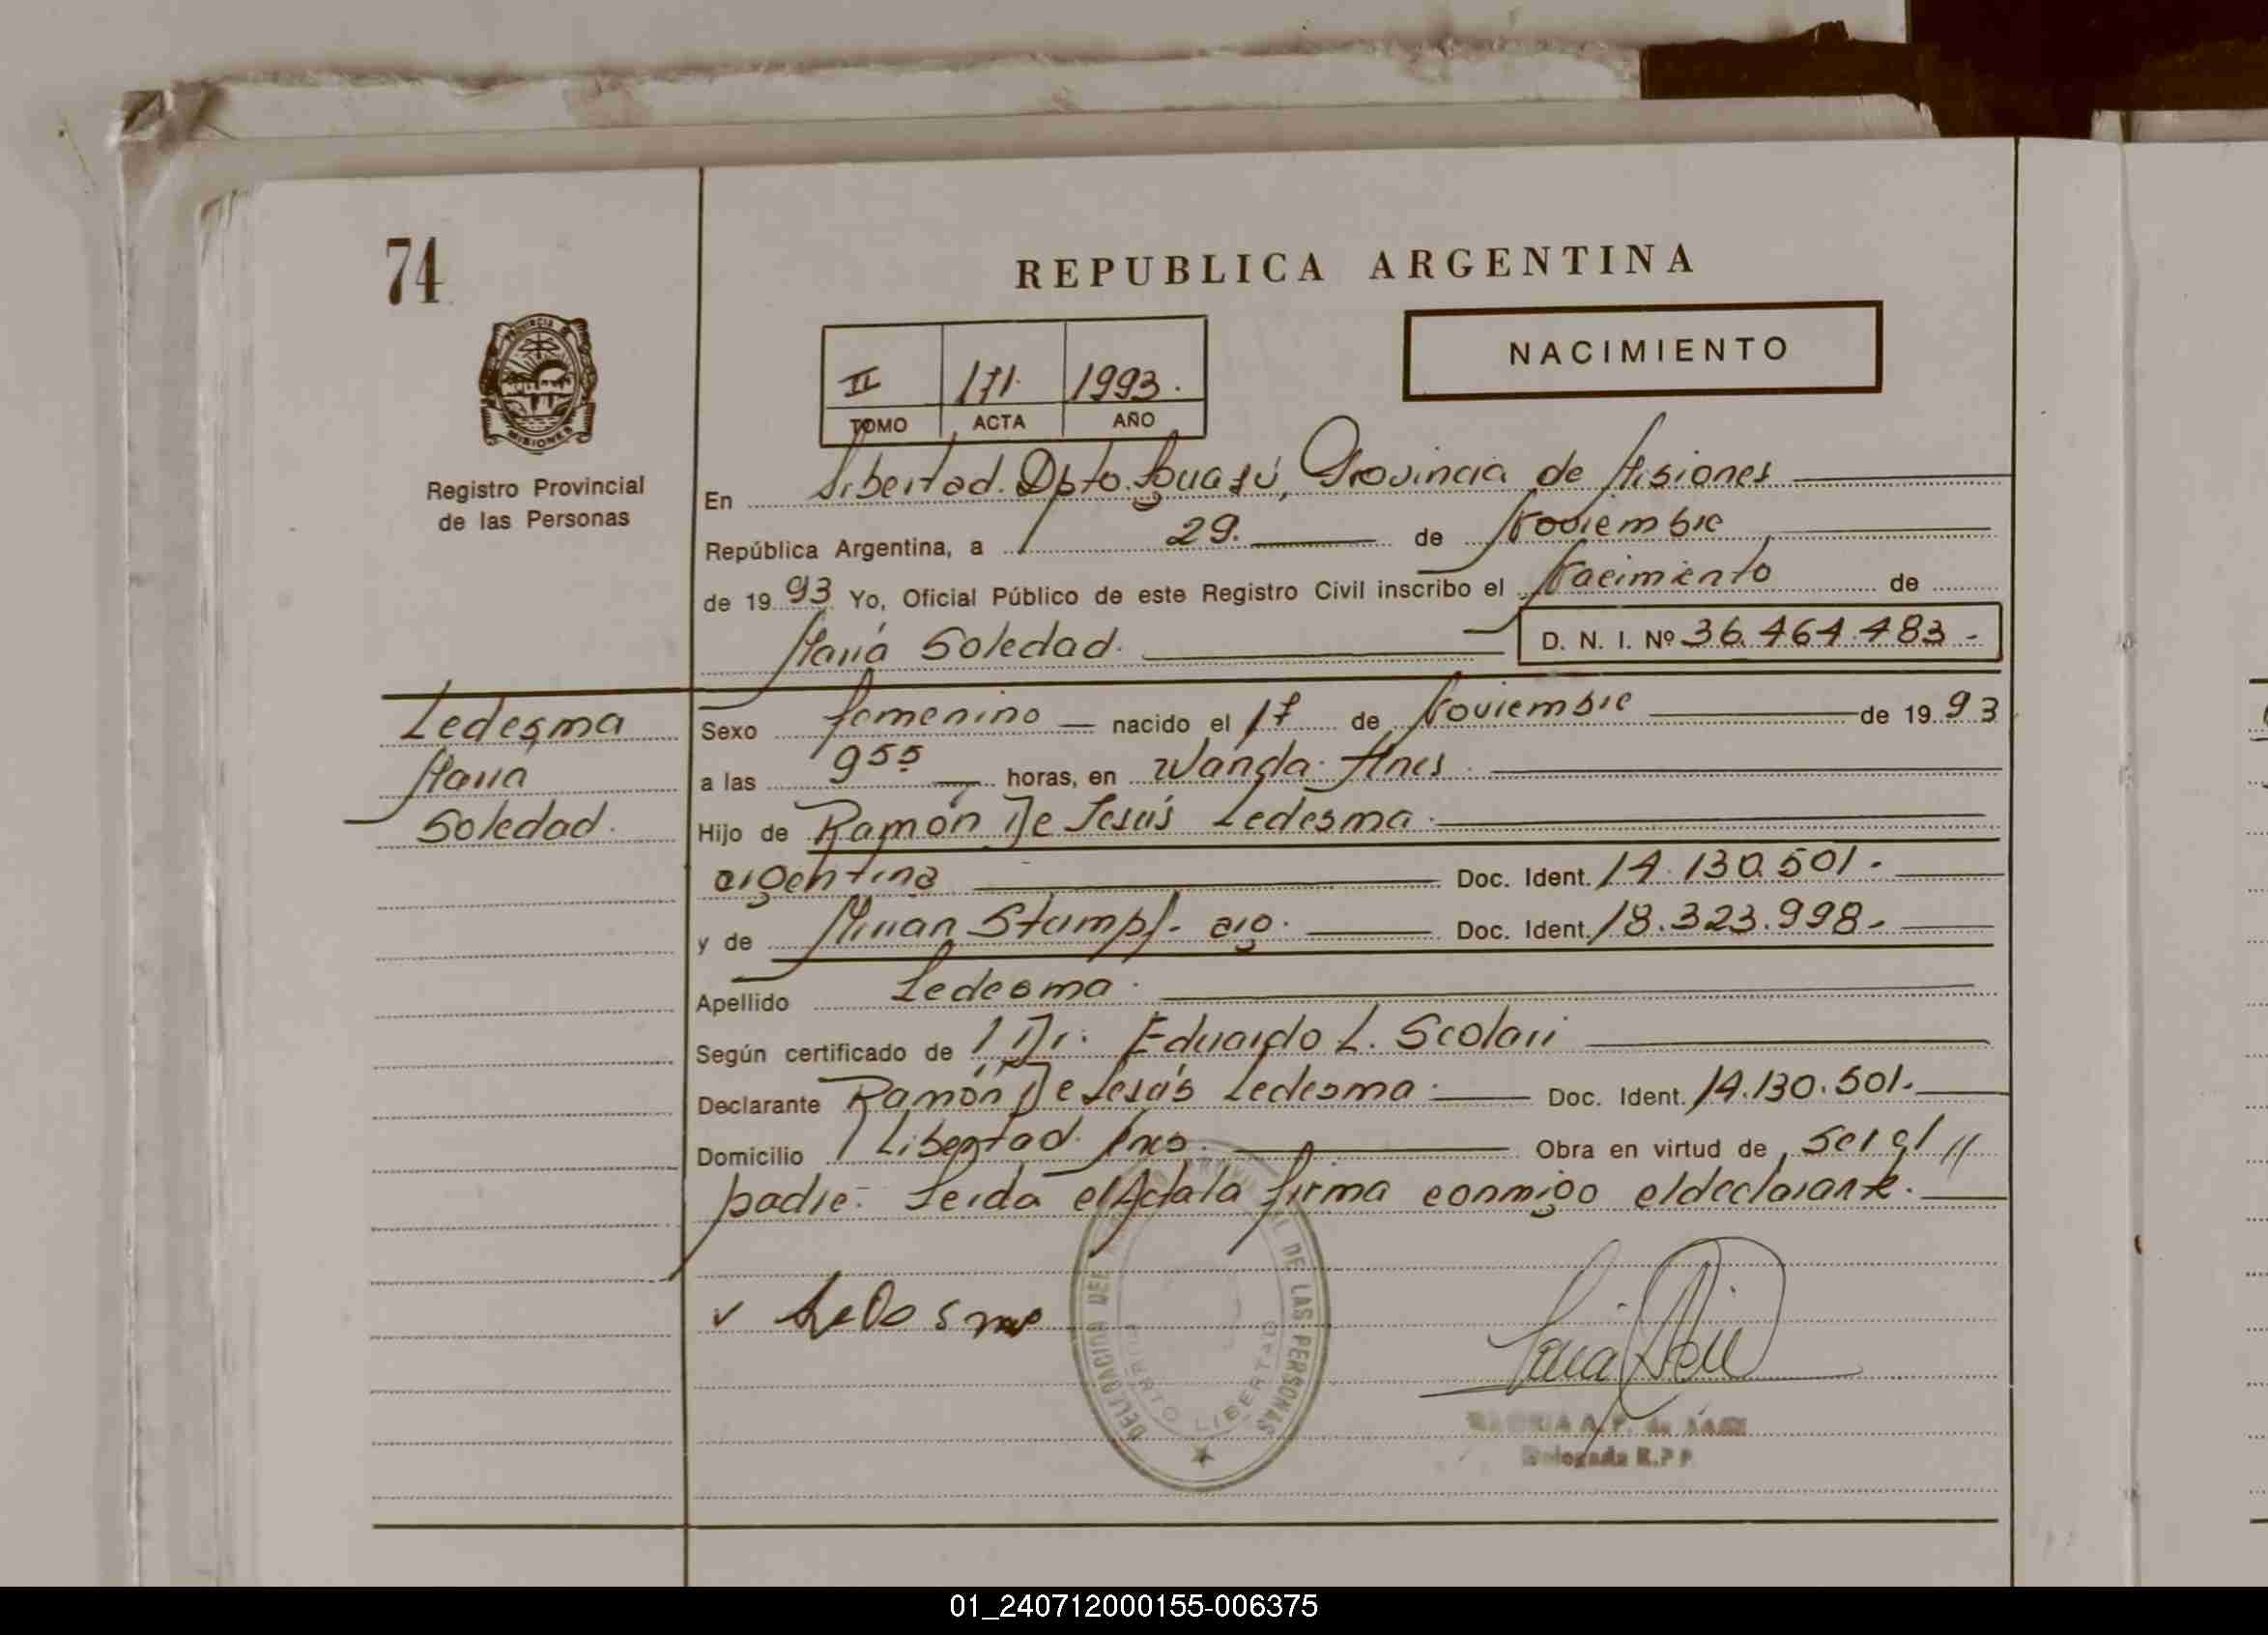 74
REPUBLICA ARGENTINA
NACIMIENTO
II 171. 1993.
TOMO ACTA AÑO
PROVINCIA DE MISIONES
Registro Provincial
de las Personas
En Libertad. Dpto. Iguazú, Provincia de Misiones
República Argentina, a 29. de Noviembre
de 1993 Yo, Oficial Público de este Registro Civil inscribo el Nacimiento de
María Soledad. D. N. I. Nº 36.464.483.-
Ledesma
María
Soledad.
Sexo femenino nacido el 17 de Noviembre de 1993
a las 9 55 horas, en Wanda. Mnes.
Hijo de Ramón De Jesús Ledesma.
argentina Doc. Ident. 14.130.501.-
y de Mirian Stumpf. arg. Doc. Ident. 18.323.998.-
Apellido Ledesma.
Según certificado de Dr. Eduardo L. Scolari
Declarante Ramón De Jesús Ledesma. Doc. Ident. 14.130.501.
Domicilio Libertad. Mnes. Obra en virtud de ser el
padre. Leida el Acta la firma conmigo el declarante.
Ledesma
DELEGACION DEL REGISTRO PROVINCIAL DE LAS PERSONAS
PUERTO LIBERTAD
A. F. de
Delegada R.P.P.
01_240712000155-006375